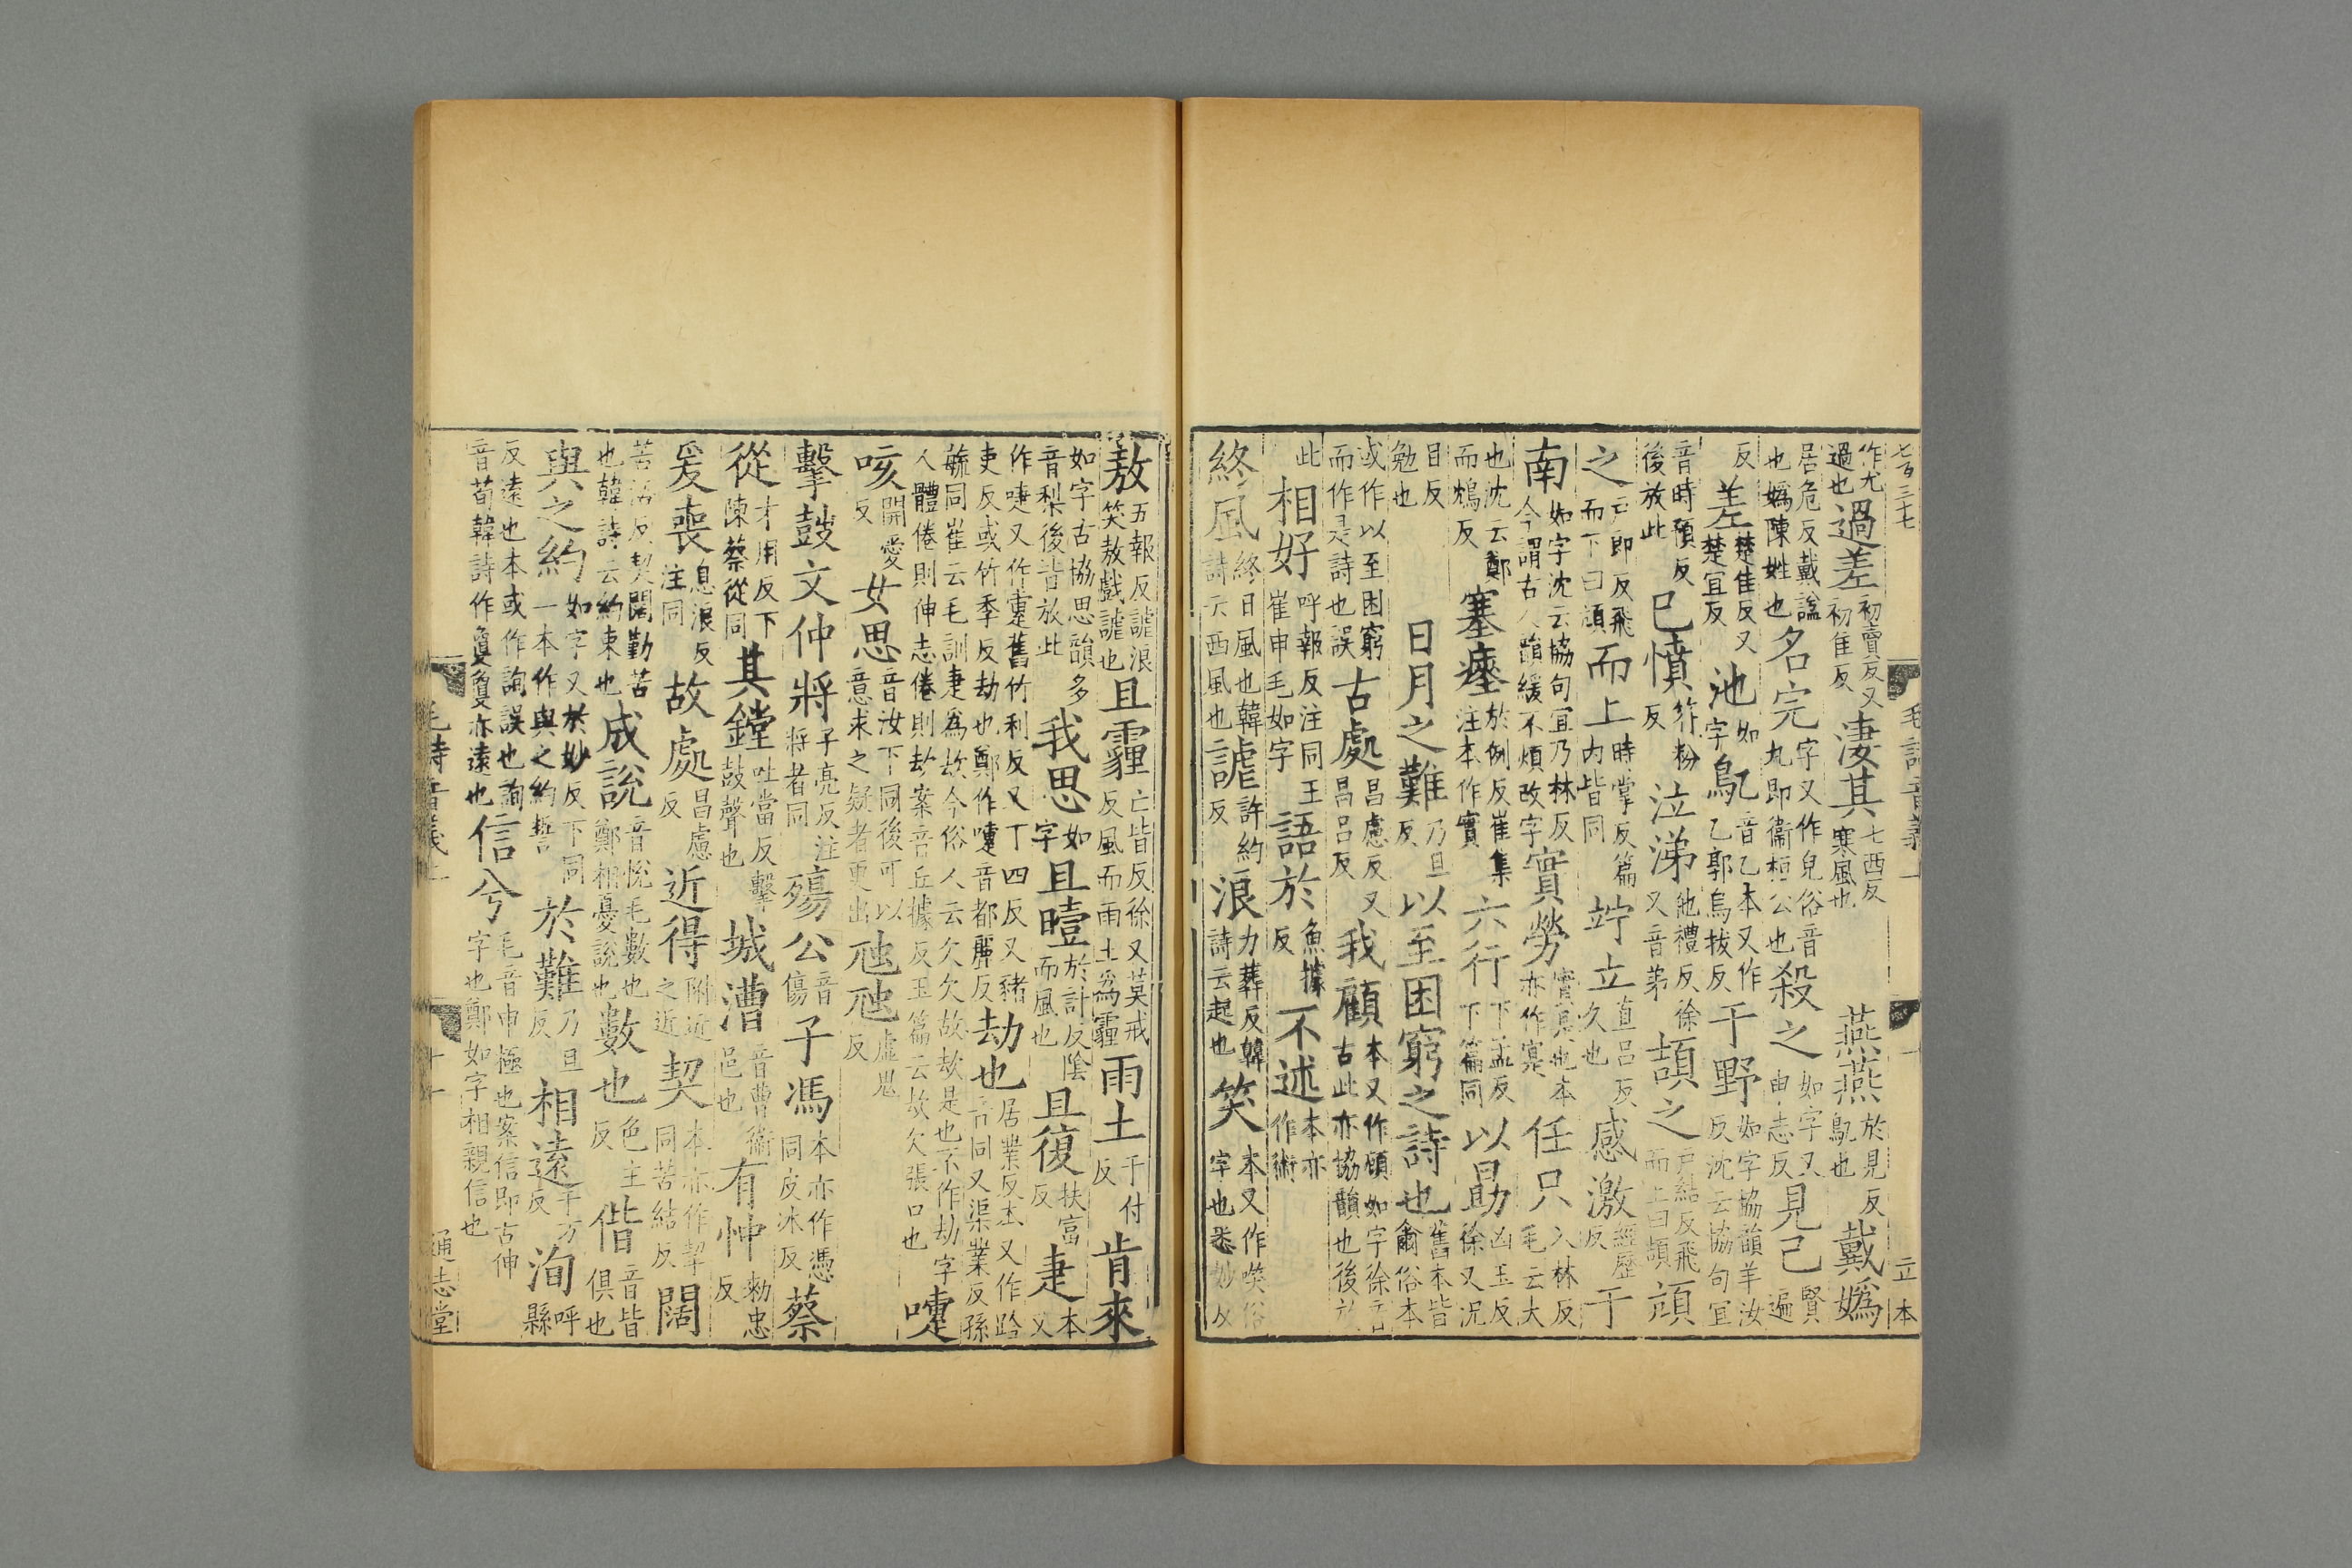 七百三十七 毛詩音義上 十 立本
作尤過也過差初賣反又初隹反淒其七西反寒風也燕燕於見反鳦也戴嬀
居危反戴謚也嬀陳姓也名完字又作皃俗音丸即衞桓公也殺之如字又申志反見己賢遍
反差楚佳反又楚宜反池如字鳦音乙本又作乙郭烏拔反于野如字協韻羊汝反沈云協句宜
音時預反後放此已憤符粉反泣涕他禮反徐又音弟頡之戶結反飛而上曰頡頏
之戶郎反飛而下曰頏而上時掌反篇内皆同竚立直呂反久也感激經歷反于
南如字沈云協句宜乃林反今謂古人韻緩不煩改字實勞實是也本亦作寔任只入林反毛云大
也沈云鄭而鴆反塞瘞於例反崔集注本作實六行下孟反下篇同以勗凶玉反徐又況
目反勉也日月之難乃旦反以至困窮之詩也舊本皆爾俗本
或作以至困窮而作是詩也誤古處昌慮反又昌呂反我顧本又作頋如字徐音古此亦協韻也後放
此相好呼報反注同王崔申毛如字語於魚據反不述本亦作術
終風終日風也韓詩云西風也謔許約反浪力葬反韓詩云起也笑本又作唉俗字也悉妙反
敖五報反謔浪笑敖戲謔也且霾亡皆反徐又莫戒反風而雨土爲霾雨土于付反肯來
如字古協思韻多音梨後皆放此我思如字且曀於計反陰而風也且復扶富反疌本又
作嚏又作疐舊竹利反又丁四反又豬吏反或竹季反劫也鄭作嚏音都麗反劫也居業反本又作跲音同又渠業反孫
毓同崔云毛訓疌爲㰦今俗人云欠欠㰦㰦是也不作劫字人體倦則伸志倦則㰦案音丘據反玉篇云㰦欠張口也嚏
咳開愛反女思音汝下同後可以意求之疑者更出虺虺虛鬼反
擊鼓文仲將子亮反注將者同殤公音傷子馮本亦作憑同皮冰反蔡
從才用反下陳蔡從同其鏜吐當反擊鼓聲也城漕音曹衞邑也有忡勑忠反
爰喪息浪反注同故處昌慮反近得附近之近契本亦作挈同苦結反闊
苦活反契闊勤苦也韓詩云約束也成說音悅毛數也鄭相憂說也數也色主反偕音皆俱也
與之約如字又於妙反下同一本作與之約誓於難乃旦反相遠于万反洵呼縣
反遠也本或作詢誤也詢音荀韓詩作敻敻亦遠也信兮毛音申極也案信即古伸字也鄭如字相親信也
毛詩音義上 十一 通志堂